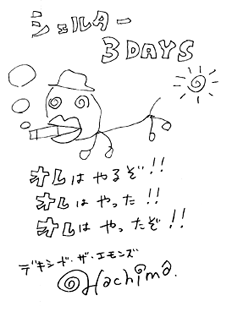 シェルター
3 DAYS
オレはやるぞ!!
オレはやった!!
オレはやったぞ!!
デキシード・ザ・エモンズ
Hachima.